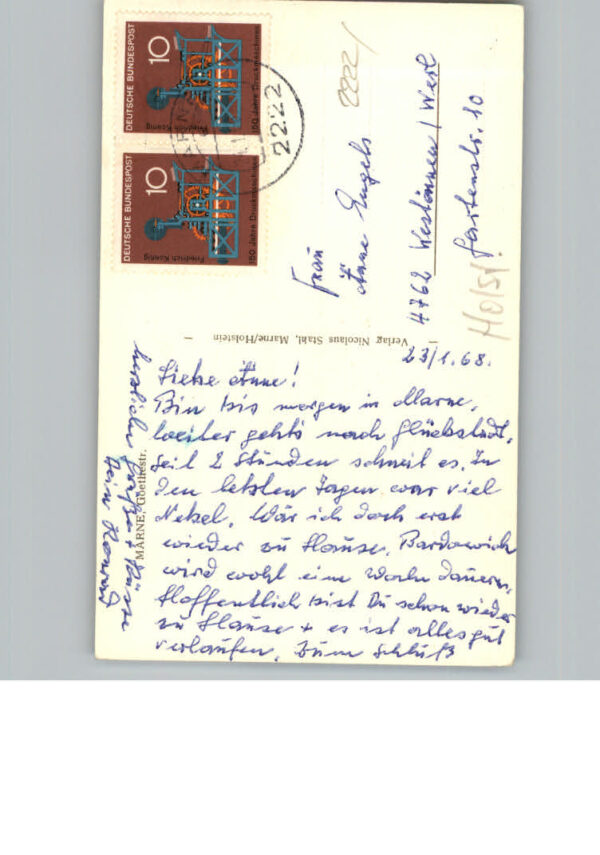 DEUTSCHE BUNDESPOST
10
Friedrich Koenig
150 Jahre Druckmaschinen
DEUTSCHE BUNDESPOST
10
Friedrich Koenig
150 Jahre Druckmaschinen
2222
2222
Frau
Änne Engels
4762 Westönnen / Werl
Gartenstr. 10
Holst.
Verlag Nicolaus Stahl, Marne/Holstein
MARNE, Goethestr.
23/1.68.
Liebe Änne!
Bin bis morgen in Marne,
weiter gehts nach Glückstadt.
Seit 2 Stunden schneit es. In
den letzten Tagen war viel
Nebel. Wär ich doch erst
wieder zu Hause. Bardowick
wird wohl eine Woche dauern.
Hoffentlich bist Du schon wieder
zu Hause + es ist alles gut
verlaufen. Zum Schluß
herzliche Grüße + Küsse
Dein